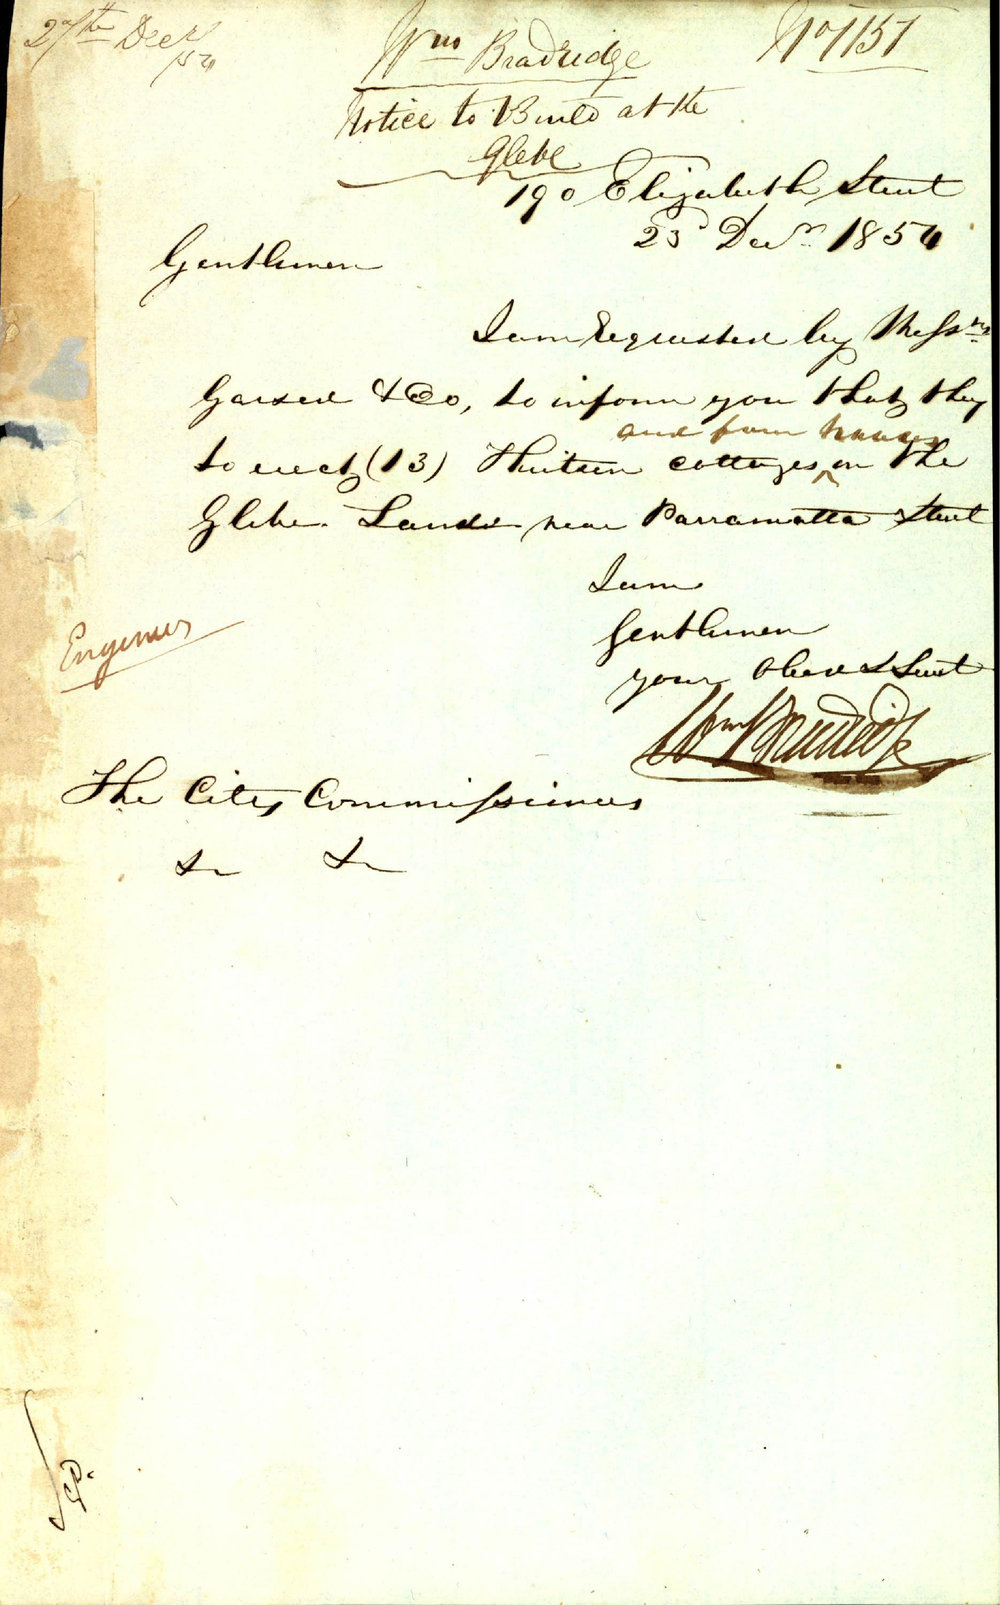 27th Decr
/54
Wm Bradridge
No 1157
Notice to Build at the
Glebe
190 Elizabeth Street
23d Decr 1854
Gentlemen
I am Requested by Messrs
& Co, to inform you that they
and four houses
to erect (13) Thirteen cottages on the
Glebe Lands near Parramatta Street
I am
Gentlemen
your Obed Sert
Wm Bradridge
Engineer
The City Commissioners
&c &c